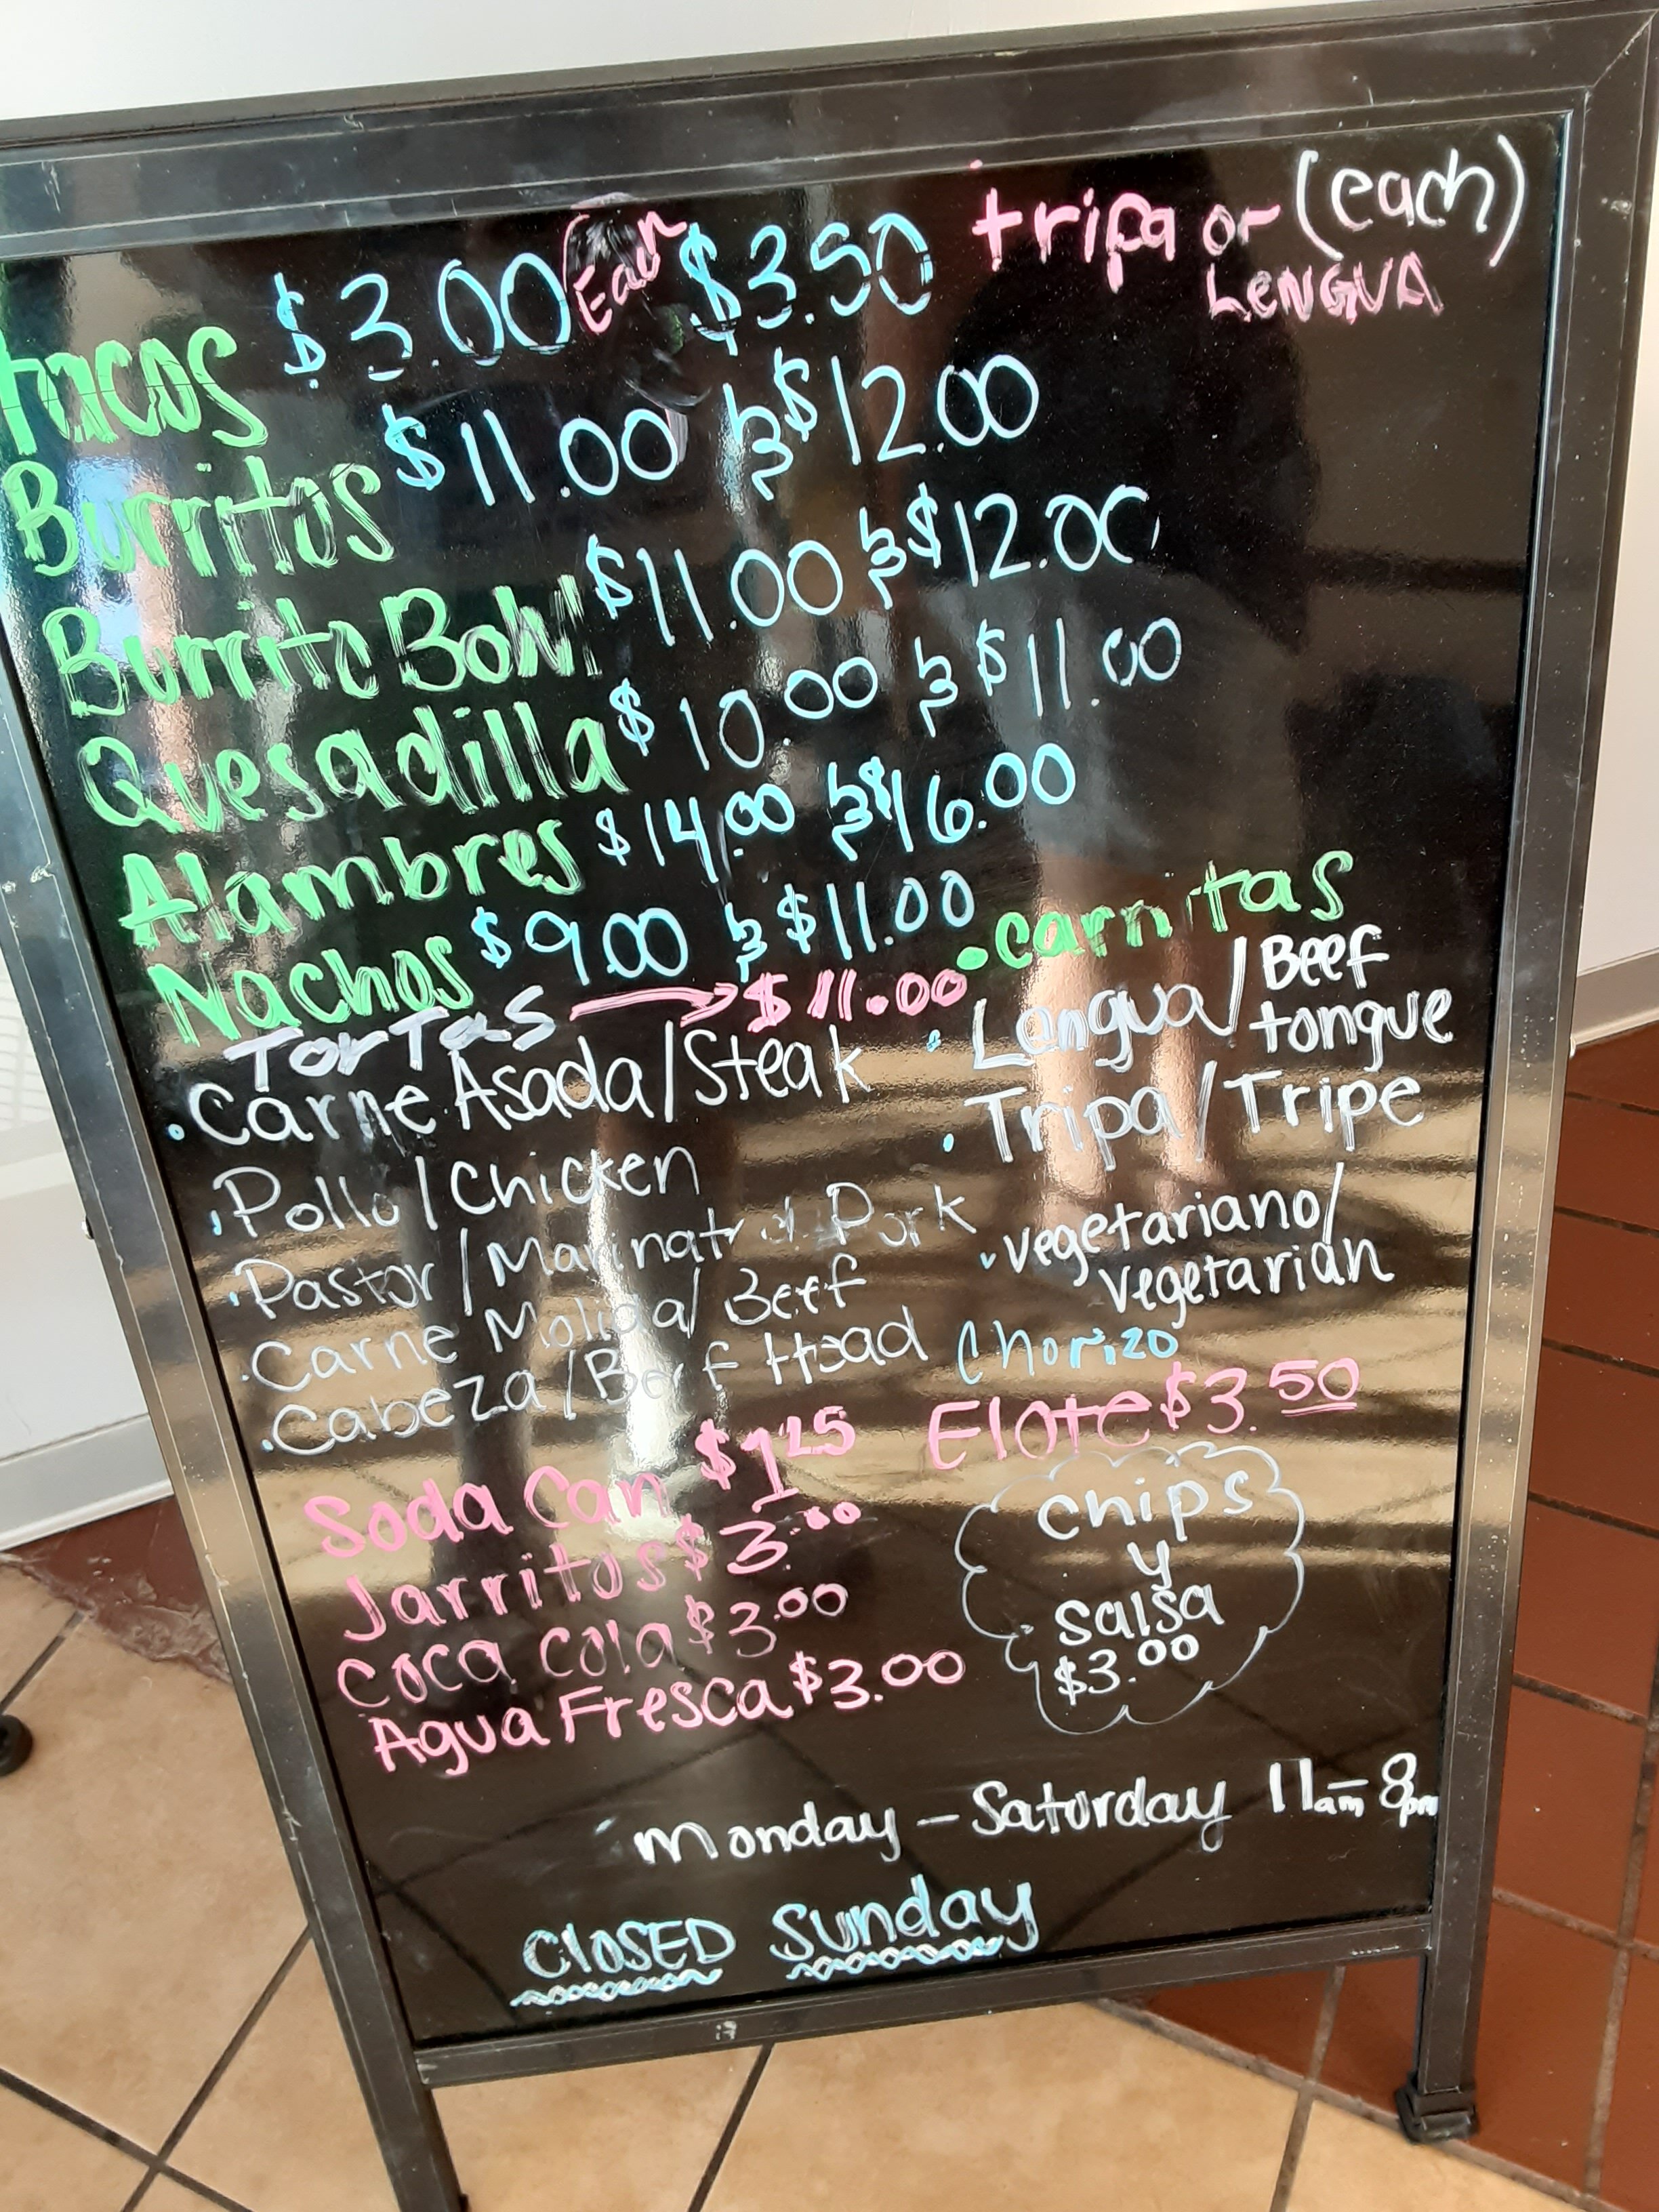 tacos $3.00 Each $3.50 tripa or (each)
LENGUA
Burritos $11.00 & $12.00
Burrito Bowl $11.00 & $12.00
Quesadilla $10.00 & $11.00
Alambres $14.00 & $16.00
Nachos $9.00 & $11.00
TorTas → $11.00
• carnitas
• Carne Asada/Steak
• Lengua/Beef
tongue
• Pollo/Chicken
• Tripa/Tripe
• Pastor/Marinated Pork
• Vegetariano/
Vegetarian
• Carne Molida/Beef
• Cabeza/Beef Head
Chorizo
Soda Can $1.25
Elote $3.50
Jarritos $3.00
Coca Cola $3.00
Agua Fresca $3.00
Chips
y
Salsa
$3.00
Monday - Saturday 11am - 8pm
CLOSED Sunday